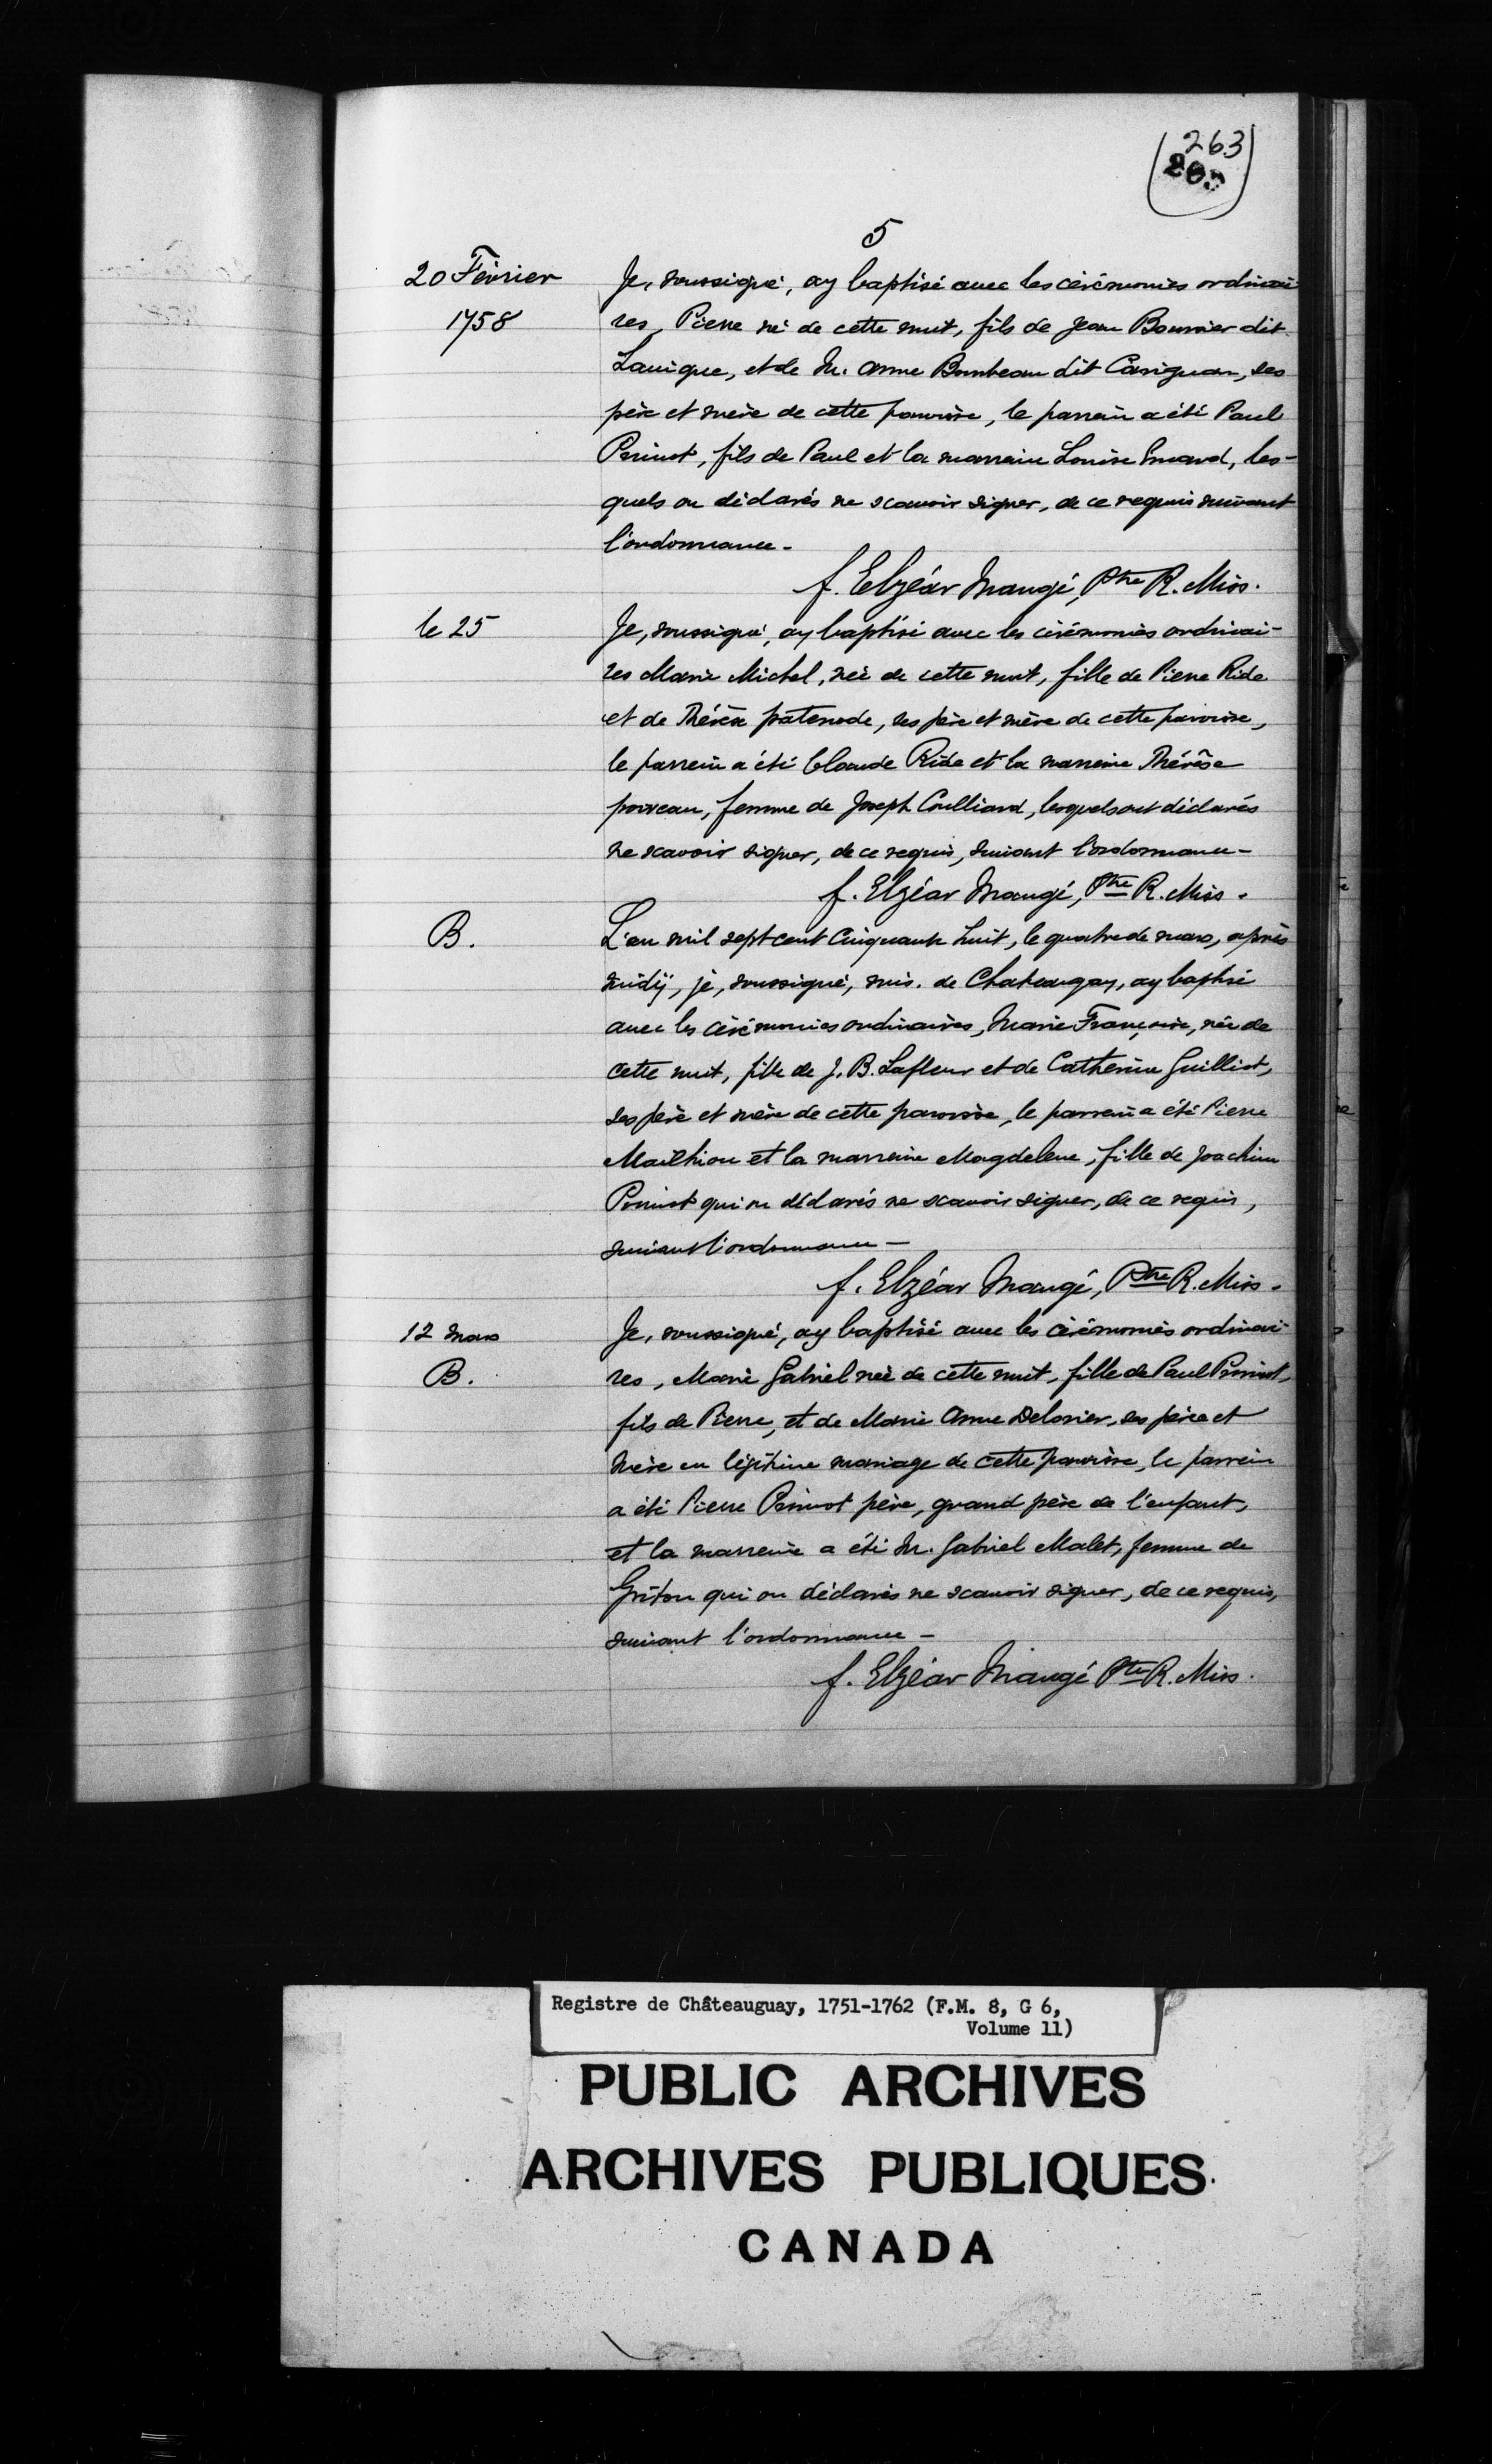 263
5
20 Février
Je, soussigné, ay baptisé avec les cérémonies ordinai-
1758
res, Pierre né de cette nuit, fils de Jean Boursier dit
Lavigne, et de M. Anne Bombeau dit Carignan, ses
père et mère de cette parroisse, le parrein a été Paul
Primot, fils de Paul et la marreine Louise Emard, les-
quels on déclarés ne scavoir signer, de ce requis suivant
l'ordonnance -
f. Elzéar Maugé, Ptre R. Miss.
le 25
Je, soussigné, ay baptisé avec les cérémonies ordinai-
res Marie Michel, née de cette nuit, fille de Pierre Ride
et de Thérèse patenode, ses père et mère de cette paroisse,
le parrein a été Claude Ride et la marreine Thérèse
femme de Joseph Coulliard, lesquels ont déclarés
ne scavoir signer, de ce requis, suivant l'ordonnance -
f. Elzéar Maugé, Ptre R. Miss.
B.
L'an mil sept cent cinquante huit, le quatre de mars, après
midÿ, je, soussigné, mis. de Chateaugay, ay baptisé
avec les cérémonies ordinaires, Marie Françoise, née de
cette nuit, fille de J. B. Lafleur et de Catherine Guilliot,
ses père et mère de cette paroisse, le parrein a été Pierre
Mailhiou et la marreine Magdelene, fille de Joachim
Primot qui on déclarés ne scavoir signer, de ce requis,
suivant l'ordonnance -
f. Elzéar Maugé, Ptre R. Miss.
12 mars
Je, soussigné, ay baptisé avec les cérémonies ordinai-
B.
res, Marie Gabriel née de cette nuit, fille de Paul Primot,
fils de Pierre, et de Marie Anne Delorier, ses père et
mère en légitime mariage de cette paroisse, le parrein
a été Pierre Primot père, grand père de l'enfant,
et la marreine a été M. Gabriel Malet, femme de
Griton qui on déclarés ne scavoir signer, de ce requis,
suivant l'ordonnance -
f. Elzéar Maugé Ptre R. Miss.
Registre de Châteauguay, 1751-1762 (F.M. 8, G 6,
Volume 11)
PUBLIC ARCHIVES
ARCHIVES PUBLIQUES
CANADA